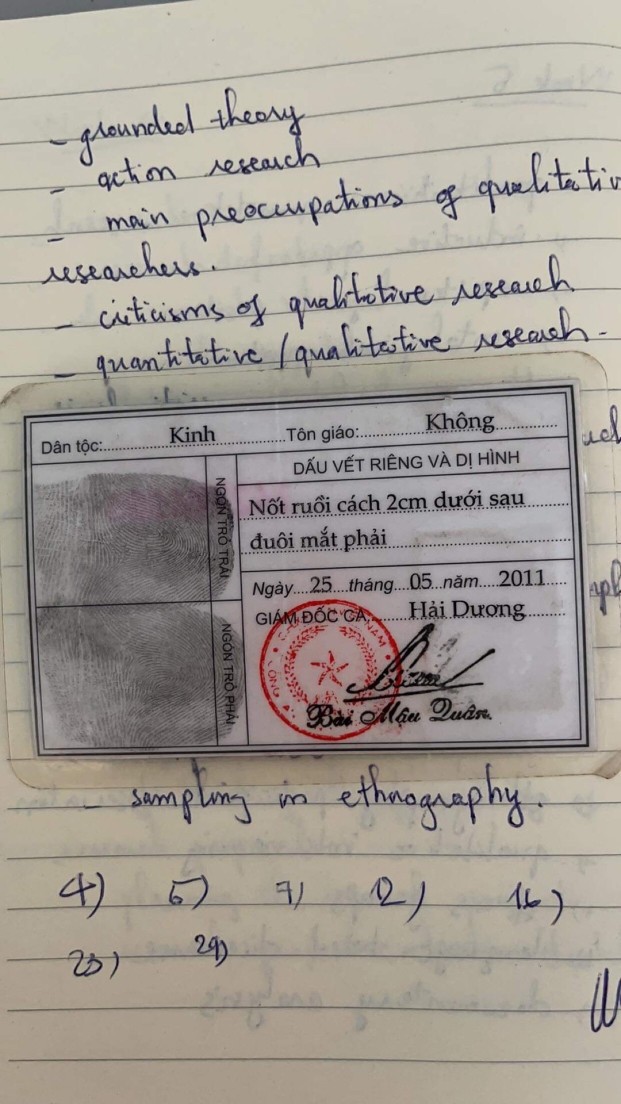 - grounded theory
- action research
- main preoccupations of qualitativ
researchers.
- criticisms of qualitative research
- quantitative / qualitative research -
Dân tộc: Kinh Tôn giáo: Không
DẤU VẾT RIÊNG VÀ DỊ HÌNH
NGÓN TRỎ TRÁI
Nốt ruồi cách 2cm dưới sau
đuôi mắt phải
Ngày 25 tháng 05 năm 2011
GIÁM ĐỐC CA Hải Dương
NGÓN TRỎ PHẢI
Bùi Mậu Quân.
- sampling in ethnography.
4) 5) 7) 12) 16)
23) 29)